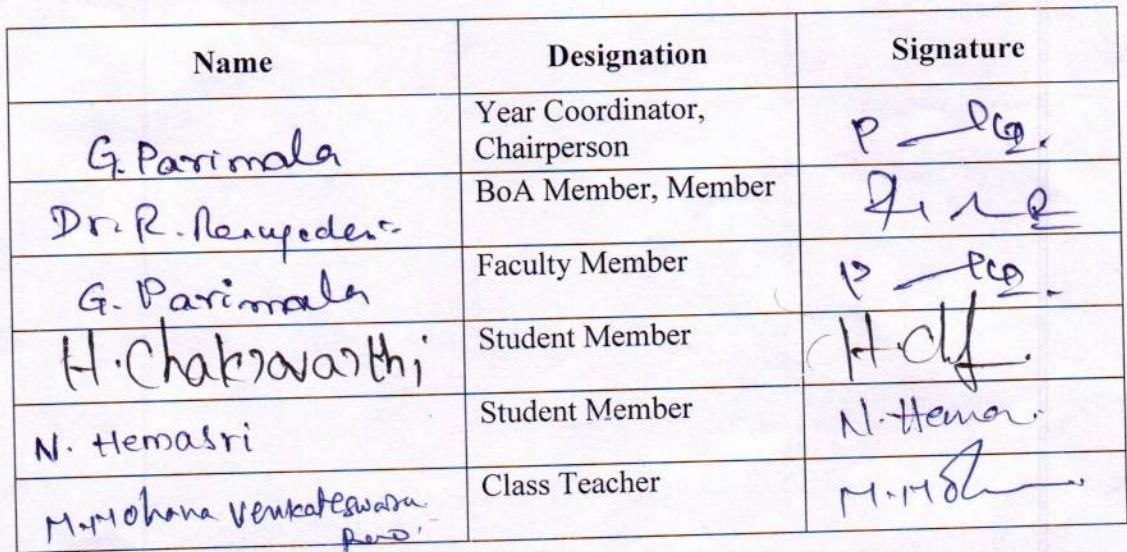 Name Designation Signature
G. Parimala Year Coordinator,
Chairperson
Dr. R. Renugadevi BoA Member, Member
G. Parimala Faculty Member
H. Chakravarthi Student Member H. Ch
N. Hemasri Student Member N. Hema.
M. Mohana Venkateswara
Rao Class Teacher M. Moh